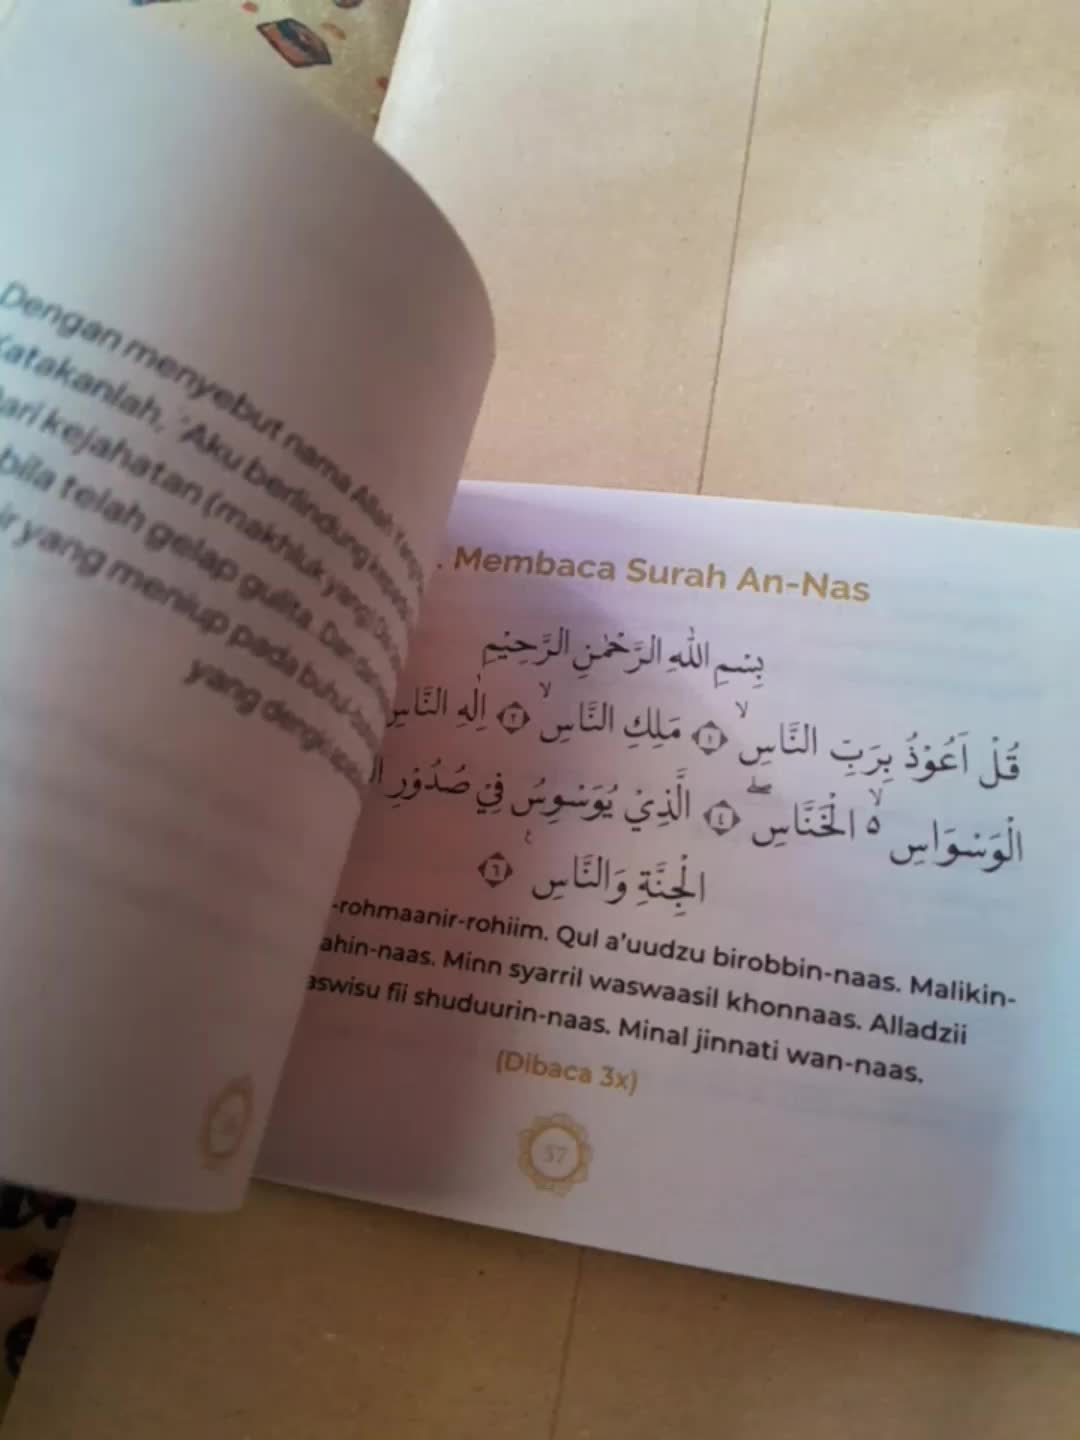 Dengan menyebut nama Allah Yang
Katakanlah, "Aku berlindung kepada
Dari kejahatan (makhluk yang) Dia
bila telah gelap gulita. Dan dari
yang meniup pada buhul-buhul
yang dengki
. Membaca Surah An-Nas
بِسْمِ اللهِ الرَّحْمٰنِ الرَّحِيْمِ
قُلْ اَعُوْذُ بِرَبِّ النَّاسِۙ ۝١ مَلِكِ النَّاسِۙ ۝٢ اِلٰهِ النَّاسِ
الْوَسْوَاسِ ۙ٥ الْخَنَّاسِۖ ۝٤ الَّذِيْ يُوَسْوِسُ فِيْ صُدُوْرِ
الْجِنَّةِ وَالنَّاسِ ۝٦
-rohmaanir-rohiim. Qul a'uudzu birobbin-naas. Malikin-
ahin-naas. Minn syarril waswaasil khonnaas. Alladzii
aswisu fii shuduurin-naas. Minal jinnati wan-naas.
(Dibaca 3x)
37